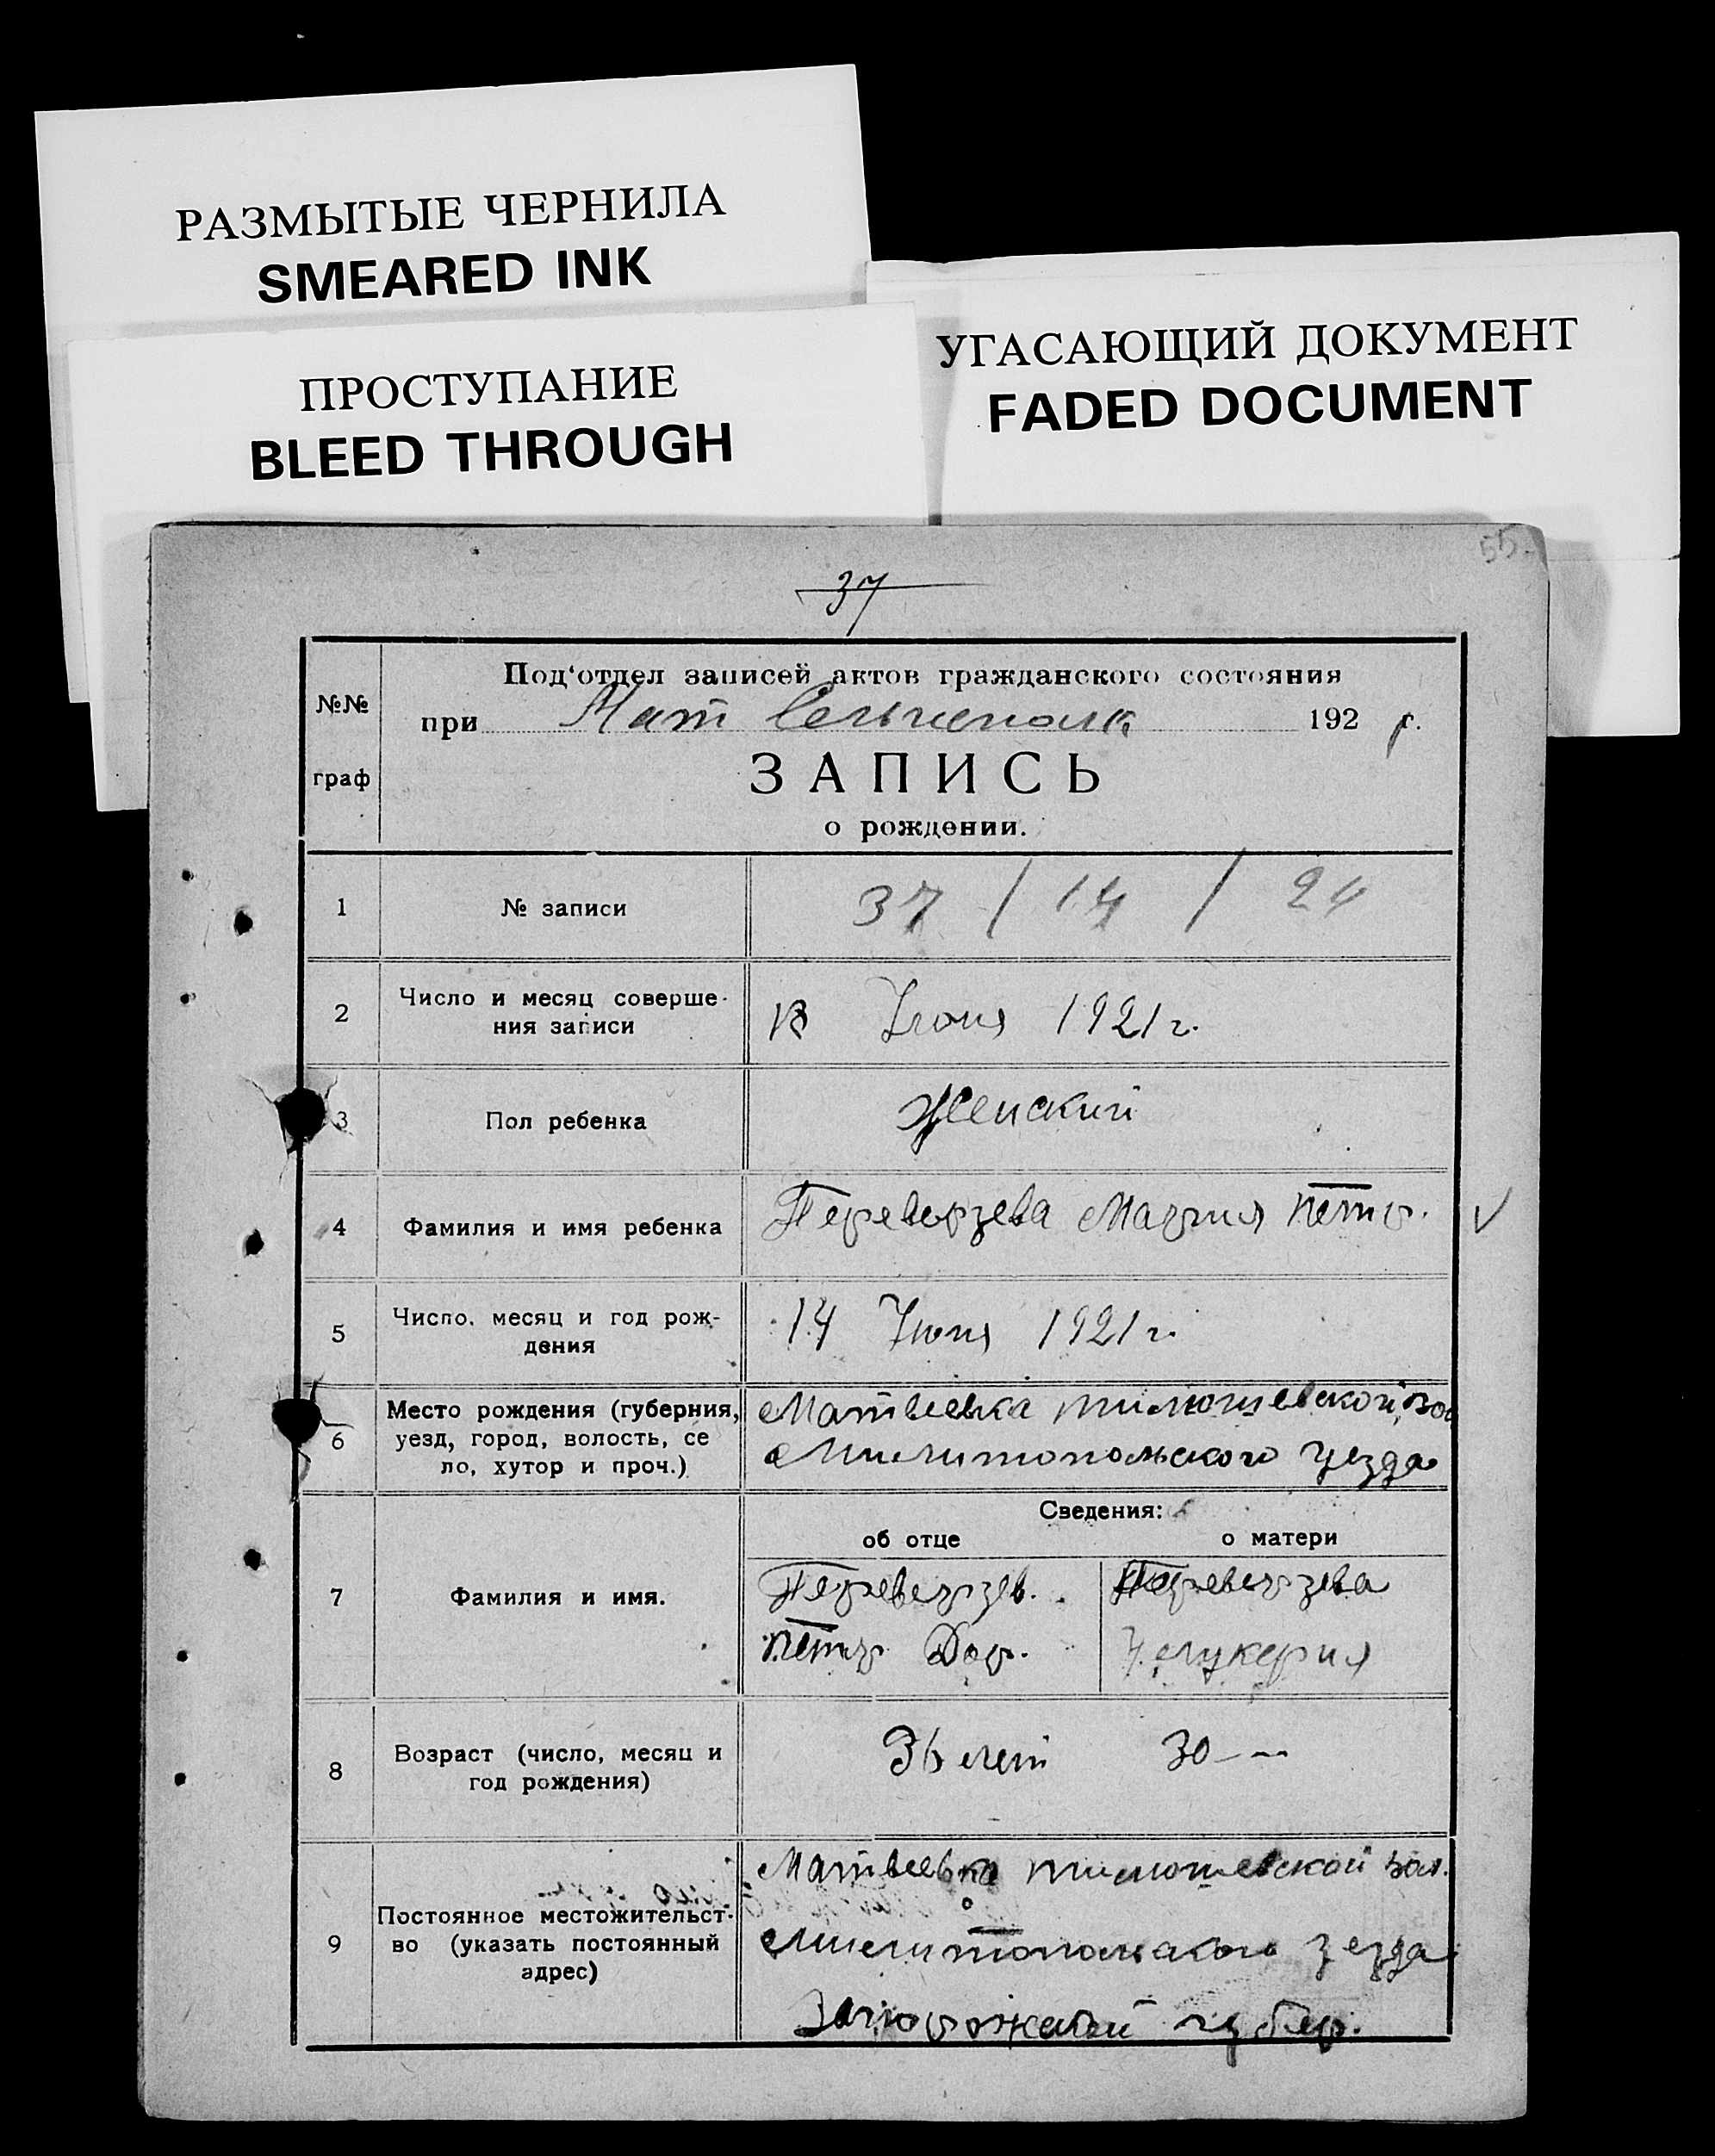 РАЗМЫТЫЕ ЧЕРНИЛА
SMEARED INK
ПРОСТУПАНИЕ
BLEED THROUGH
УГАСАЮЩИЙ ДОКУМЕНТ
FADED DOCUMENT
55.
37
№№ граф
Под‘отдел записей актов гражданского состояния
при Мат 192 г.
ЗАПИСЬ
о рождении.
1 № записи 37 / 14 / 24
2 Число и месяц соверше-
ния записи Июня 1921 г.
3 Пол ребенка Женский
4 Фамилия и имя ребенка Переверзева Мария Петр. ✓
5 Число, месяц и год рож-
дения 14 Июня 1921 г.
6 Место рождения (губерния, Матвеевка тимошевской вол
уезд, город, волость, се Милитопольского уезда
ло, хутор и проч.)
Сведения:
об отце о матери
7 Фамилия и имя. Переверзев. Переверзева
Петр Дор.
8 Возраст (число, месяц и 36 лет 30 — „
год рождения)
Матвеевка тимошевской вол.
9 Постоянное местожительст-
во (указать постоянный Милитопольского уезда
адрес)
Запорожской губер.